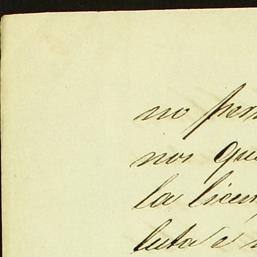 no per
nos que
la licen
luta e